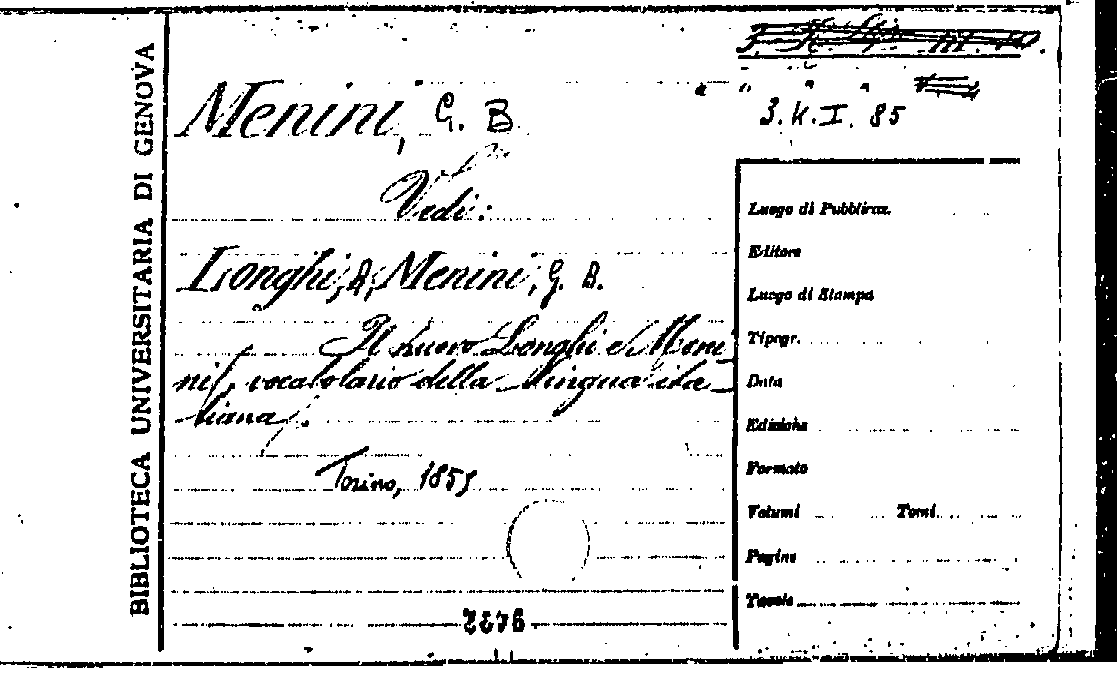 BIBLIOTECA UNIVERSITARIA DI GENOVA
3.K.I. 85
Menini, G. B.
Vedi:
Longhi, A, Menini, G. B.
Il nuovo Longhi e Meni
ni, vocabolario della lingua ita
liana.
Torino, 1859
Luogo di Pubblicaz.
Editore
Luogo di Stampa
Tipogr.
Data
Edizione
Formato
Volumi Tomi
Pagine
Tavole